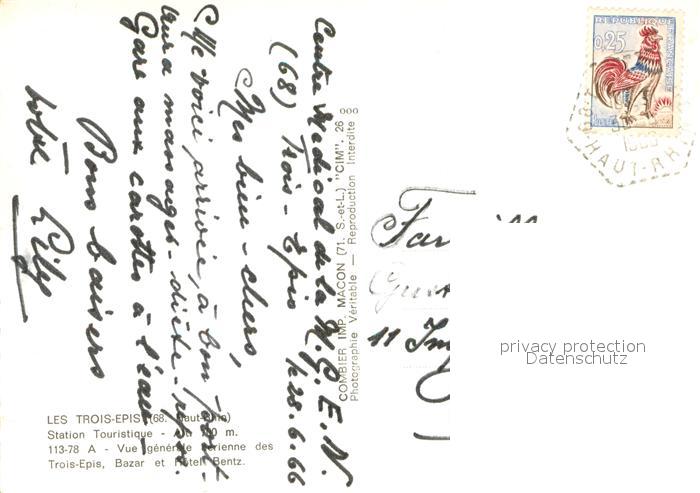 Centre Medical de la M.G.E.N.
(68) Trois-Epis le 28.6.66
Mes bien-chers,
Me voici arrivée, à bon port-
leura massages-diète-repos.
Gare aux carottes à l'eau-
Bons baisers
votre Lily
COMBIER IMP. MACON (71. S.-et-L.) "CIM". 26 000
Photographie Véritable — Reproduction Interdite
LES TROIS-EPIS (68. Haut-Rhin)
Station Touristique - Alt. 700 m.
113-78 A - Vue générale aérienne des
Trois-Epis, Bazar et Hôtel Bentz.
REPUBLIQUE FRANÇAISE
0,25
HAUT-RHI
11
privacy protection
Datenschutz